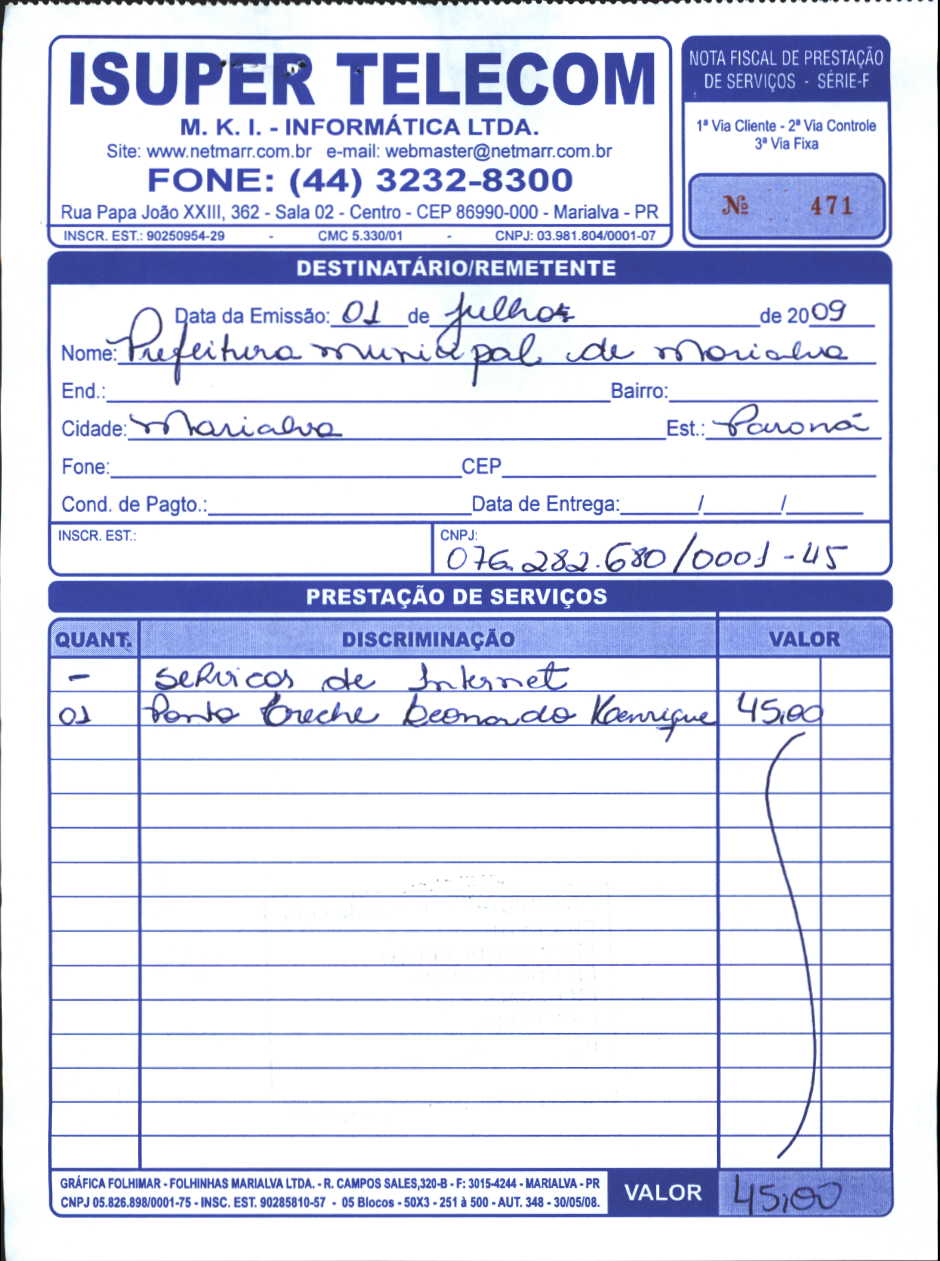 ISUPER TELECOM
M. K. I. - INFORMÁTICA LTDA.
Site: www.netmarr.com.br e-mail: webmaster@netmarr.com.br
FONE: (44) 3232-8300
Rua Papa João XXIII, 362 - Sala 02 - Centro - CEP 86990-000 - Marialva - PR
INSCR. EST.: 90250954-29 - CMC 5.330/01 - CNPJ: 03.981.804/0001-07
NOTA FISCAL DE PRESTAÇÃO
DE SERVIÇOS - SÉRIE-F
1ª Via Cliente - 2ª Via Controle
3ª Via Fixa
Nº 471
DESTINATÁRIO/REMETENTE
Data da Emissão: 01 de Julho de 2009
Nome: Prefeitura Municipal de Marialva
End.: Bairro:
Cidade: Marialva Est.: Paraná
Fone: CEP
Cond. de Pagto.: Data de Entrega: / /
INSCR. EST.: CNPJ: 076.282.680/0001-45
PRESTAÇÃO DE SERVIÇOS
QUANT. DISCRIMINAÇÃO VALOR
- Servicos de Internet
01 Ponto Creche Leonardo Henrique 45,00
GRÁFICA FOLHIMAR - FOLHINHAS MARIALVA LTDA. - R. CAMPOS SALES,320-B - F: 3015-4244 - MARIALVA - PR
CNPJ 05.826.898/0001-75 - INSC. EST. 90285810-57 - 05 Blocos - 50X3 - 251 à 500 - AUT. 348 - 30/05/08.
VALOR 45,00